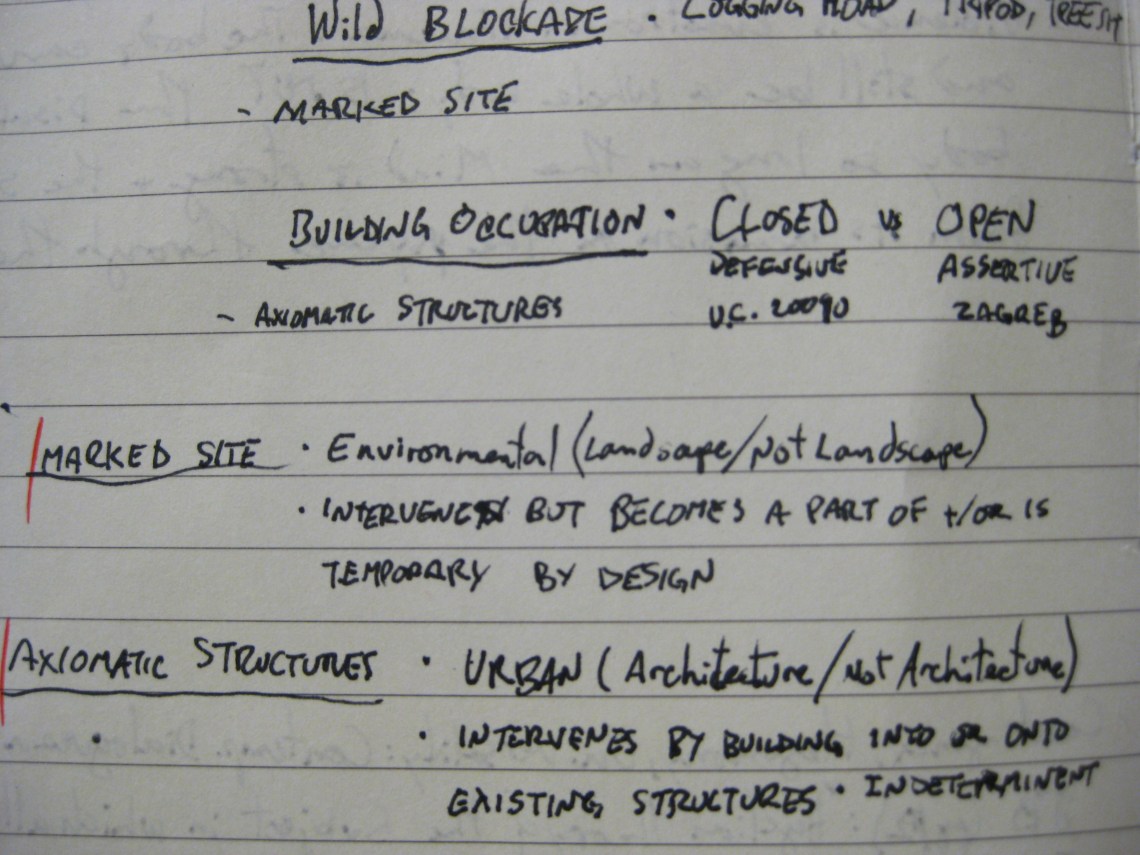 Wild BLOCKADE • LOGGING ROAD, TRIPOD, TREESI
- MARKED SITE
BUILDING OCCUPATION • CLOSED vs OPEN
DEFENSIVE ASSERTIVE
- AXIOMATIC STRUCTURES U.C. 20090 ZAGREB
MARKED SITE • Environmental (Landscape/Not Landscape)
• INTERVENES BUT BECOMES A PART OF +/OR IS
TEMPORARY BY DESIGN
AXIOMATIC STRUCTURES • URBAN (Architecture/Not Architecture)
• INTERVENES BY BUILDING INTO OR ONTO
EXISTING STRUCTURES • INDETERMINENT